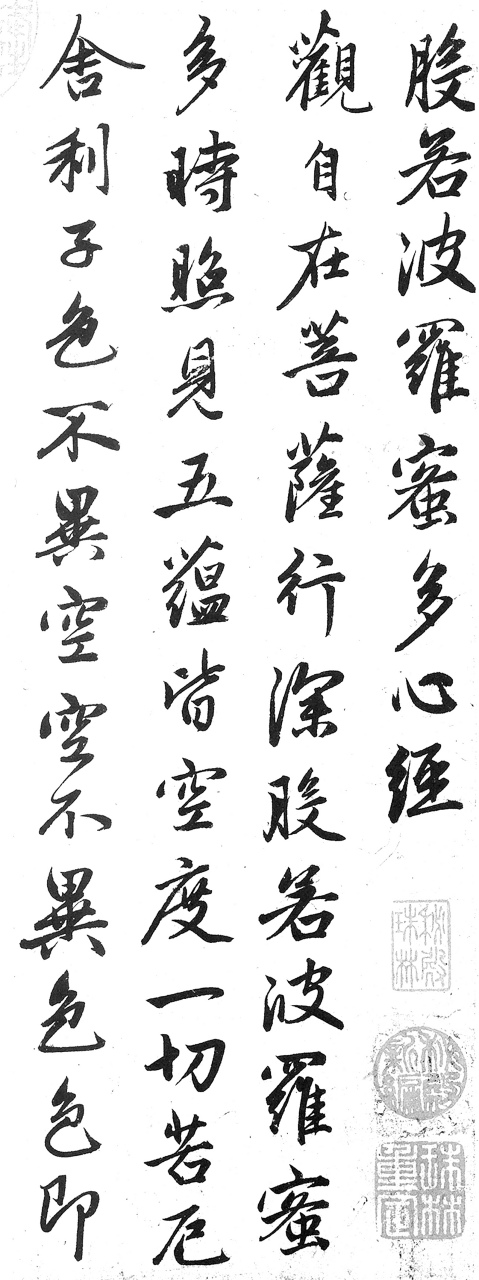 般若波羅蜜多心經
觀自在菩薩行深般若波羅蜜
多時照見五蘊皆空度一切苦厄
舍利子色不異空空不異色色即
秘殿珠林
秘殿新編
珠林重定